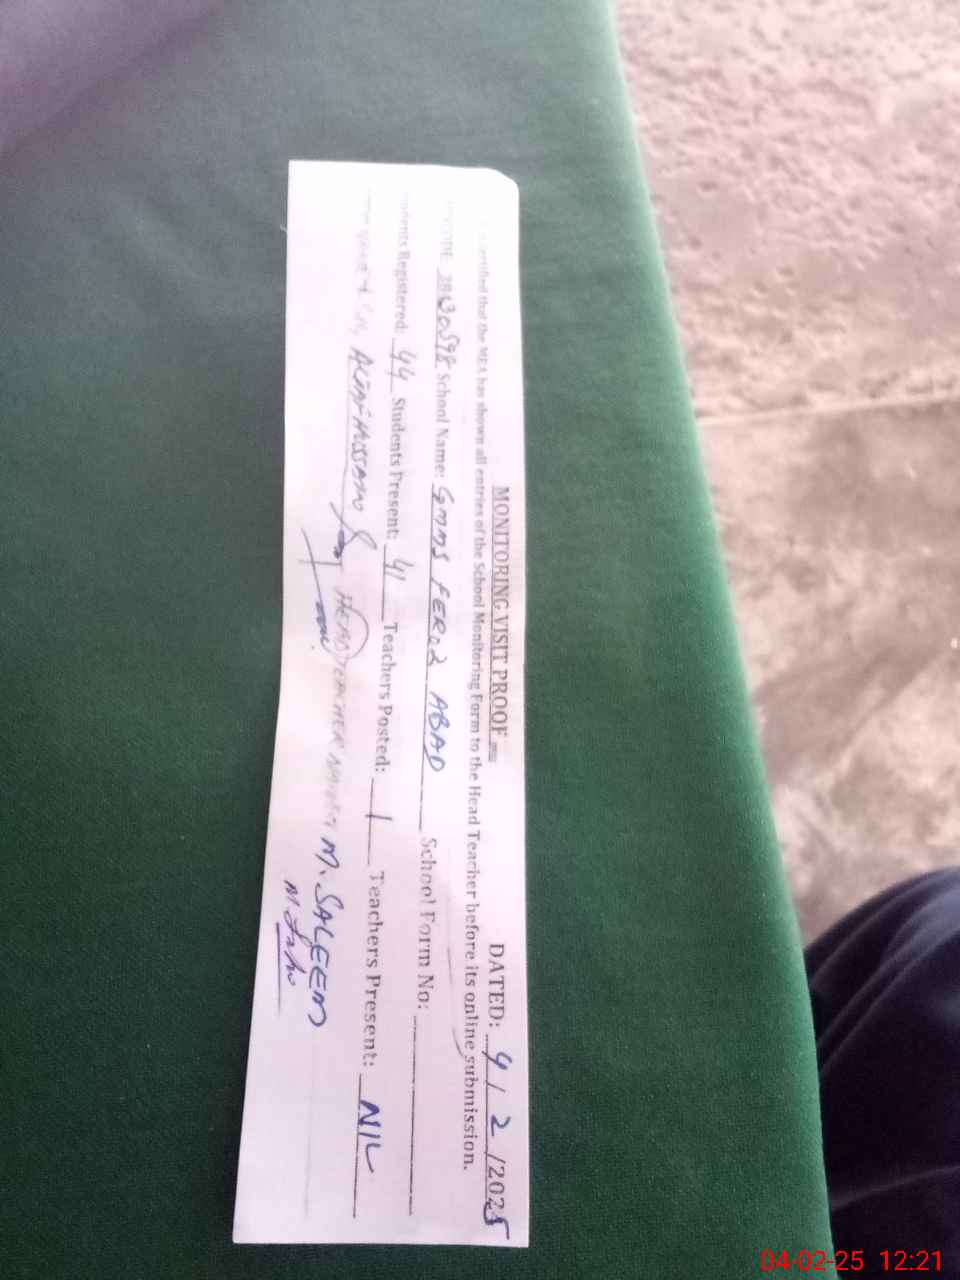 MONITORING VISIT PROOF DATED: 4/2/2025
certified that the MEA has shown all entries of the School Monitoring Form to the Head Teacher before its online submission.
School Name: GMMS FEROZ ABAD School Form No:
Students Registered: 44 Students Present: 41 Teachers Posted: 1 Teachers Present: NIL
ALTAF HUSSAIN HEAD TEACHER NAME M. SALEEM
04-02-25 12:21